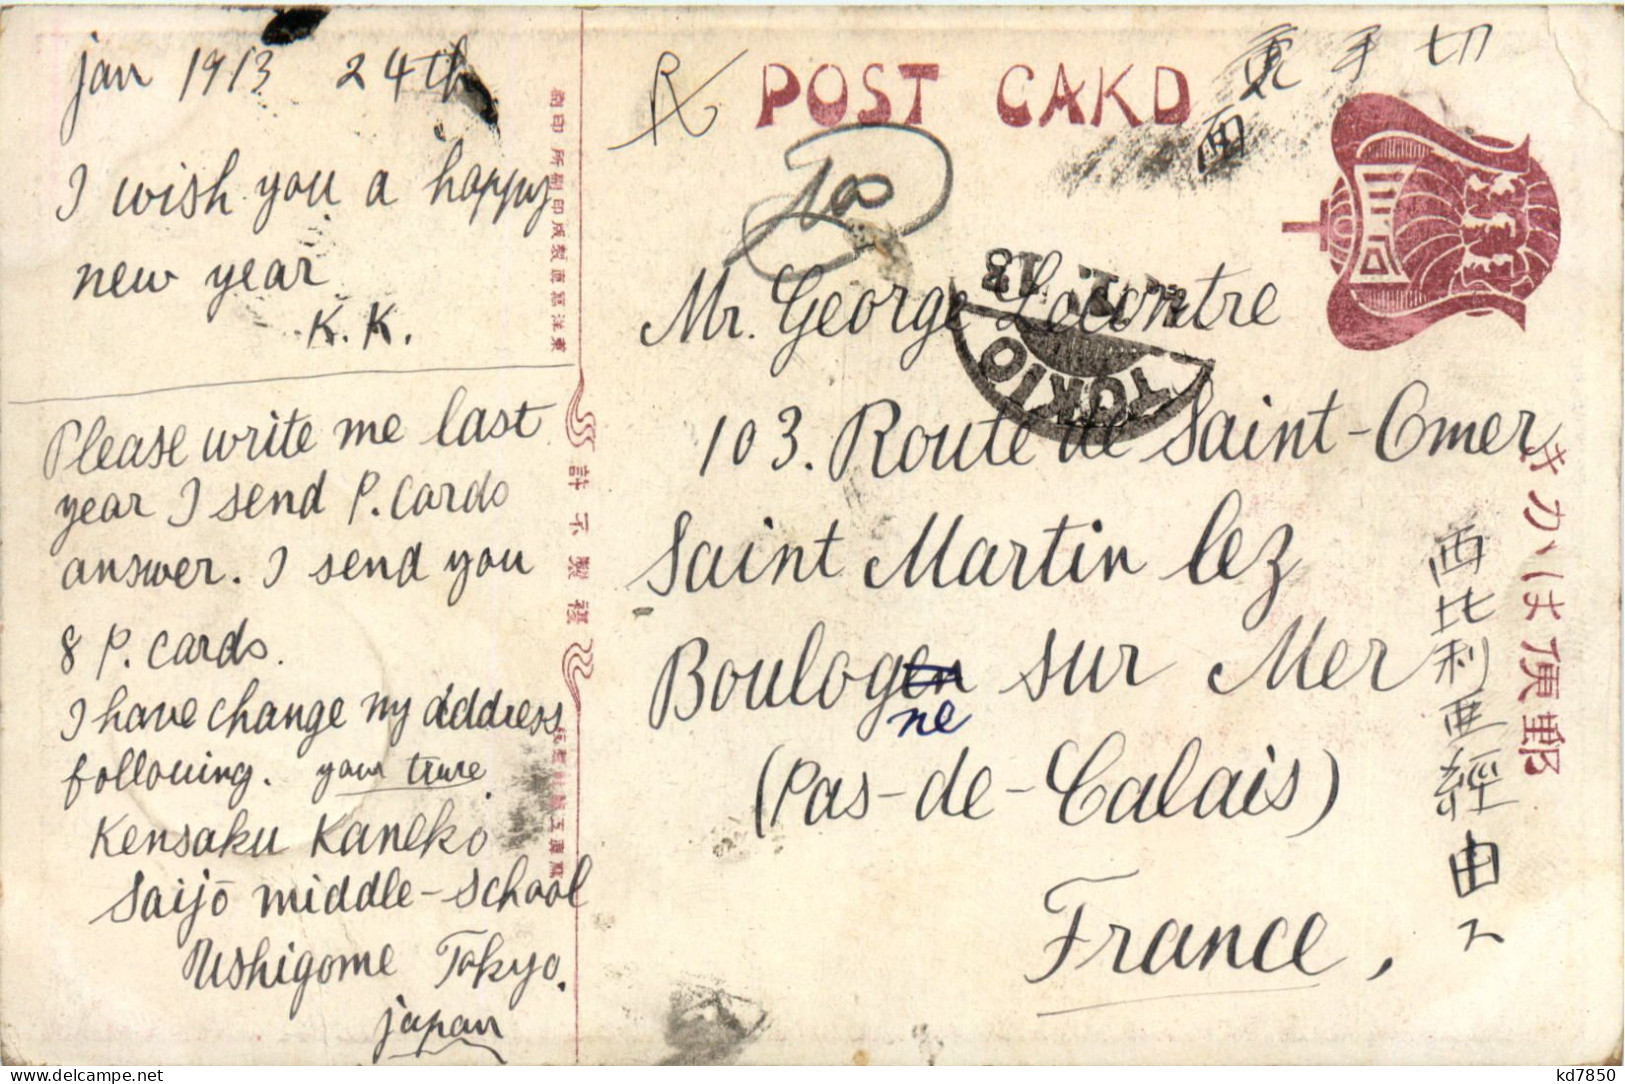 jan 1913 24th
I wish you a happy
new year
K. K.
Please write me last
year I send P. cards
answer. I send you
8 P. cards.
I have change my address
following. your true
Kensaku Kaneko
Saijō middle-school
Ushigome Tokyo.
japan
許不製複
POST CARD
切手
TOKIO
.1.13
Mr. George Lecontre
103. Route de Saint-Omer
Saint Martin lez
Boulogen sur Mer
ne
(Pas-de-Calais)
France,
西比利亜經由
郵便はかき
kd7850